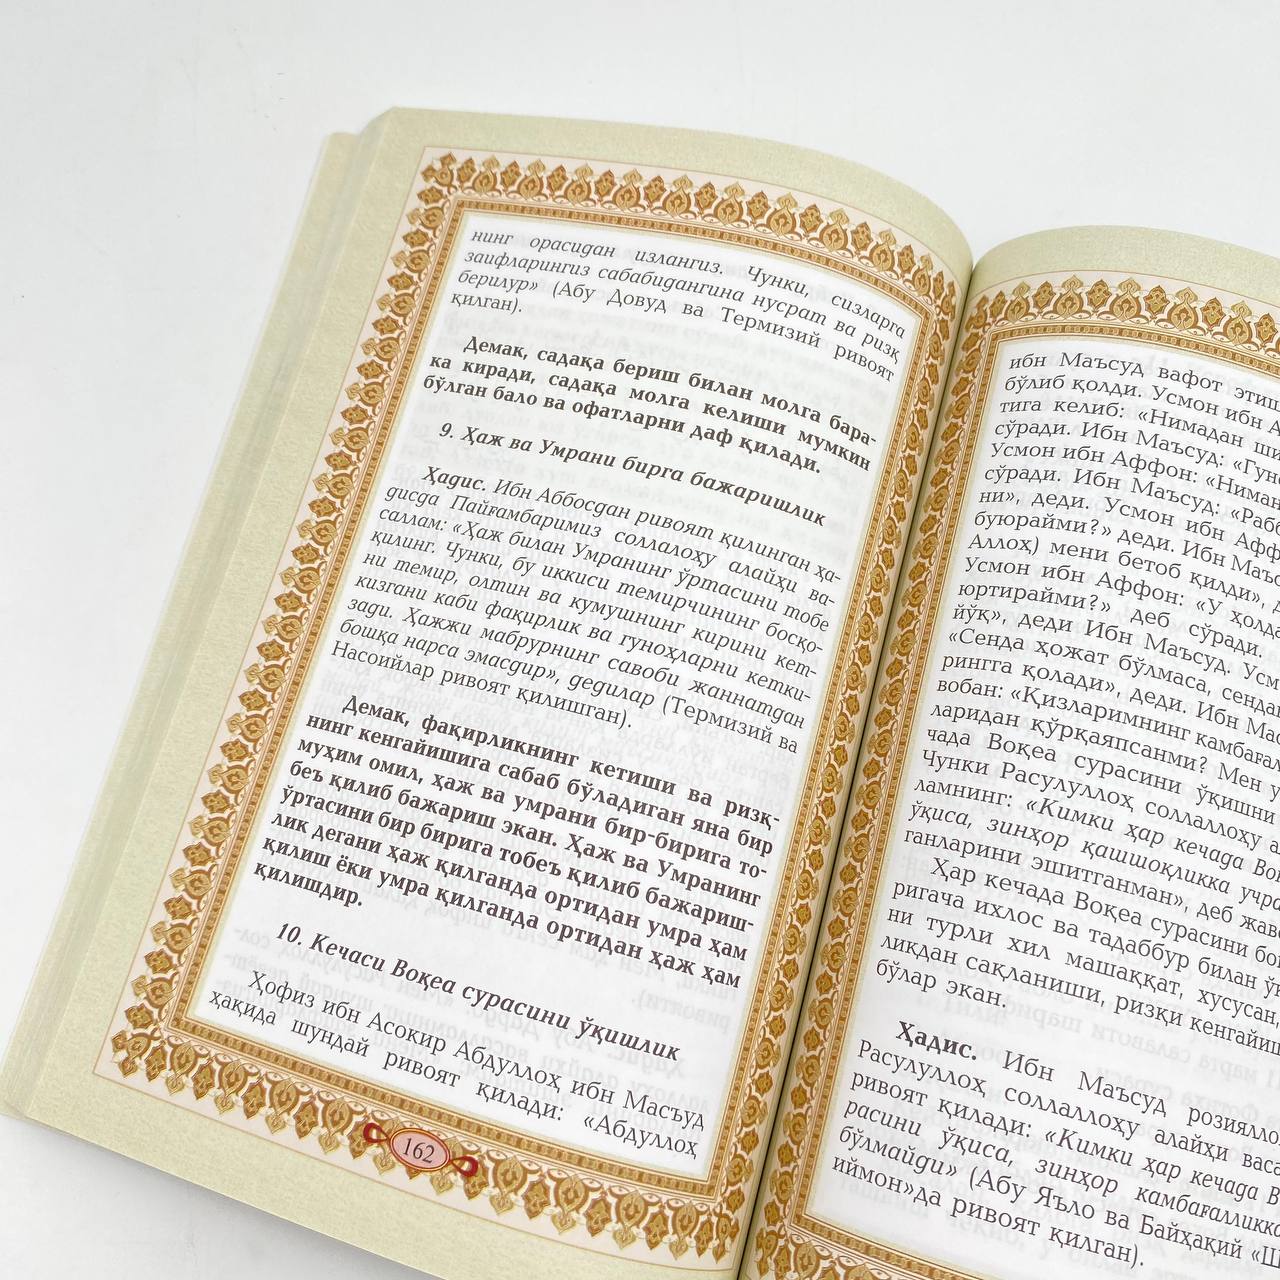 нинг орасидан излангиз. Чунки, сизларга
заифларингиз сабабидангина нусрат ва ризқ
берилур» (Абу Довуд ва Термизий ривоят
қилган).
Демак, садақа бериш билан молга бара-
ка киради, садақа молга келиши мумкин
бўлган бало ва офатларни даф қилади.
9. Ҳаж ва Умрани бирга бажаришлик
Ҳадис. Ибн Аббосдан ривоят қилинган ҳа-
дисда Пайғамбаримиз соллалоҳу алайҳи ва-
саллам: «Ҳаж билан Умранинг ўртасини тобе
қилинг. Чунки, бу иккиси темирчининг босқо-
ни темир, олтин ва кумушнинг кирини кет-
кизгани каби фақирлик ва гуноҳларни кетки-
зади. Ҳажжи мабрурнинг савоби жаннатдан
бошқа нарса эмасдир», дедилар (Термизий ва
Насоийлар ривоят қилишган).
Демак, фақирликнинг кетиши ва ризқ-
нинг кенгайишига сабаб бўладиган яна бир
муҳим омил, ҳаж ва умрани бир-бирига то-
беъ қилиб бажариш экан. Ҳаж ва Умранинг
ўртасини бир бирига тобеъ қилиб бажариш-
лик дегани ҳаж қилганда ортидан умра ҳам
қилиш ёки умра қилганда ортидан ҳаж ҳам
қилишдир.
10. Кечаси Воқеа сурасини ўқишлик
Ҳофиз ибн Асокир Абдуллоҳ ибн Масъуд
ҳақида шундай ривоят қилади: «Абдуллоҳ
162
ибн Маъсуд вафот этиш
бўлиб қолди. Усмон ибн А
тига келиб: «Нимадан ши
сўради. Ибн Маъсуд: «Гуно
Усмон ибн Аффон: «Ниман
сўради. Ибн Маъсуд: «Рабб
ни», деди. Усмон ибн Афф
буюрайми?» деди. Ибн Маъс
Аллоҳ) мени бетоб қилди», д
Усмон ибн Аффон: «У ҳолда
юртирайми?» деб сўради.
йўқ», деди Ибн Маъсуд. Усм
«Сенда ҳожат бўлмаса, сенда
рингга қолади», деди. Ибн Мас
вобан: «Қизларимнинг камбағал
ларидан қўрқаяпсанми? Мен у
чада Воқеа сурасини ўқишни
Чунки Расулуллоҳ соллаллоҳу а
ламнинг: «Кимки ҳар кечада Воқ
ўқиса, зинҳор қашшоқликка учра
ганларини эшитганман», деб жаво
Ҳар кечада Воқеа сурасини бош
ригача ихлос ва тадаббур билан ўқ
ни турли хил машаққат, хусусан,
ликдан сақланиши, ризқи кенгайиш
бўлар экан.
Ҳадис. Ибн Маъсуд розияллоҳ
Расулуллоҳ соллаллоҳу алайҳи васа
ривоят қилади: «Кимки ҳар кечада В
расини ўқиса, зинҳор камбағалликка
бўлмайди» (Абу Яъло ва Байҳақий «Ш
иймон»да ривоят қилган).